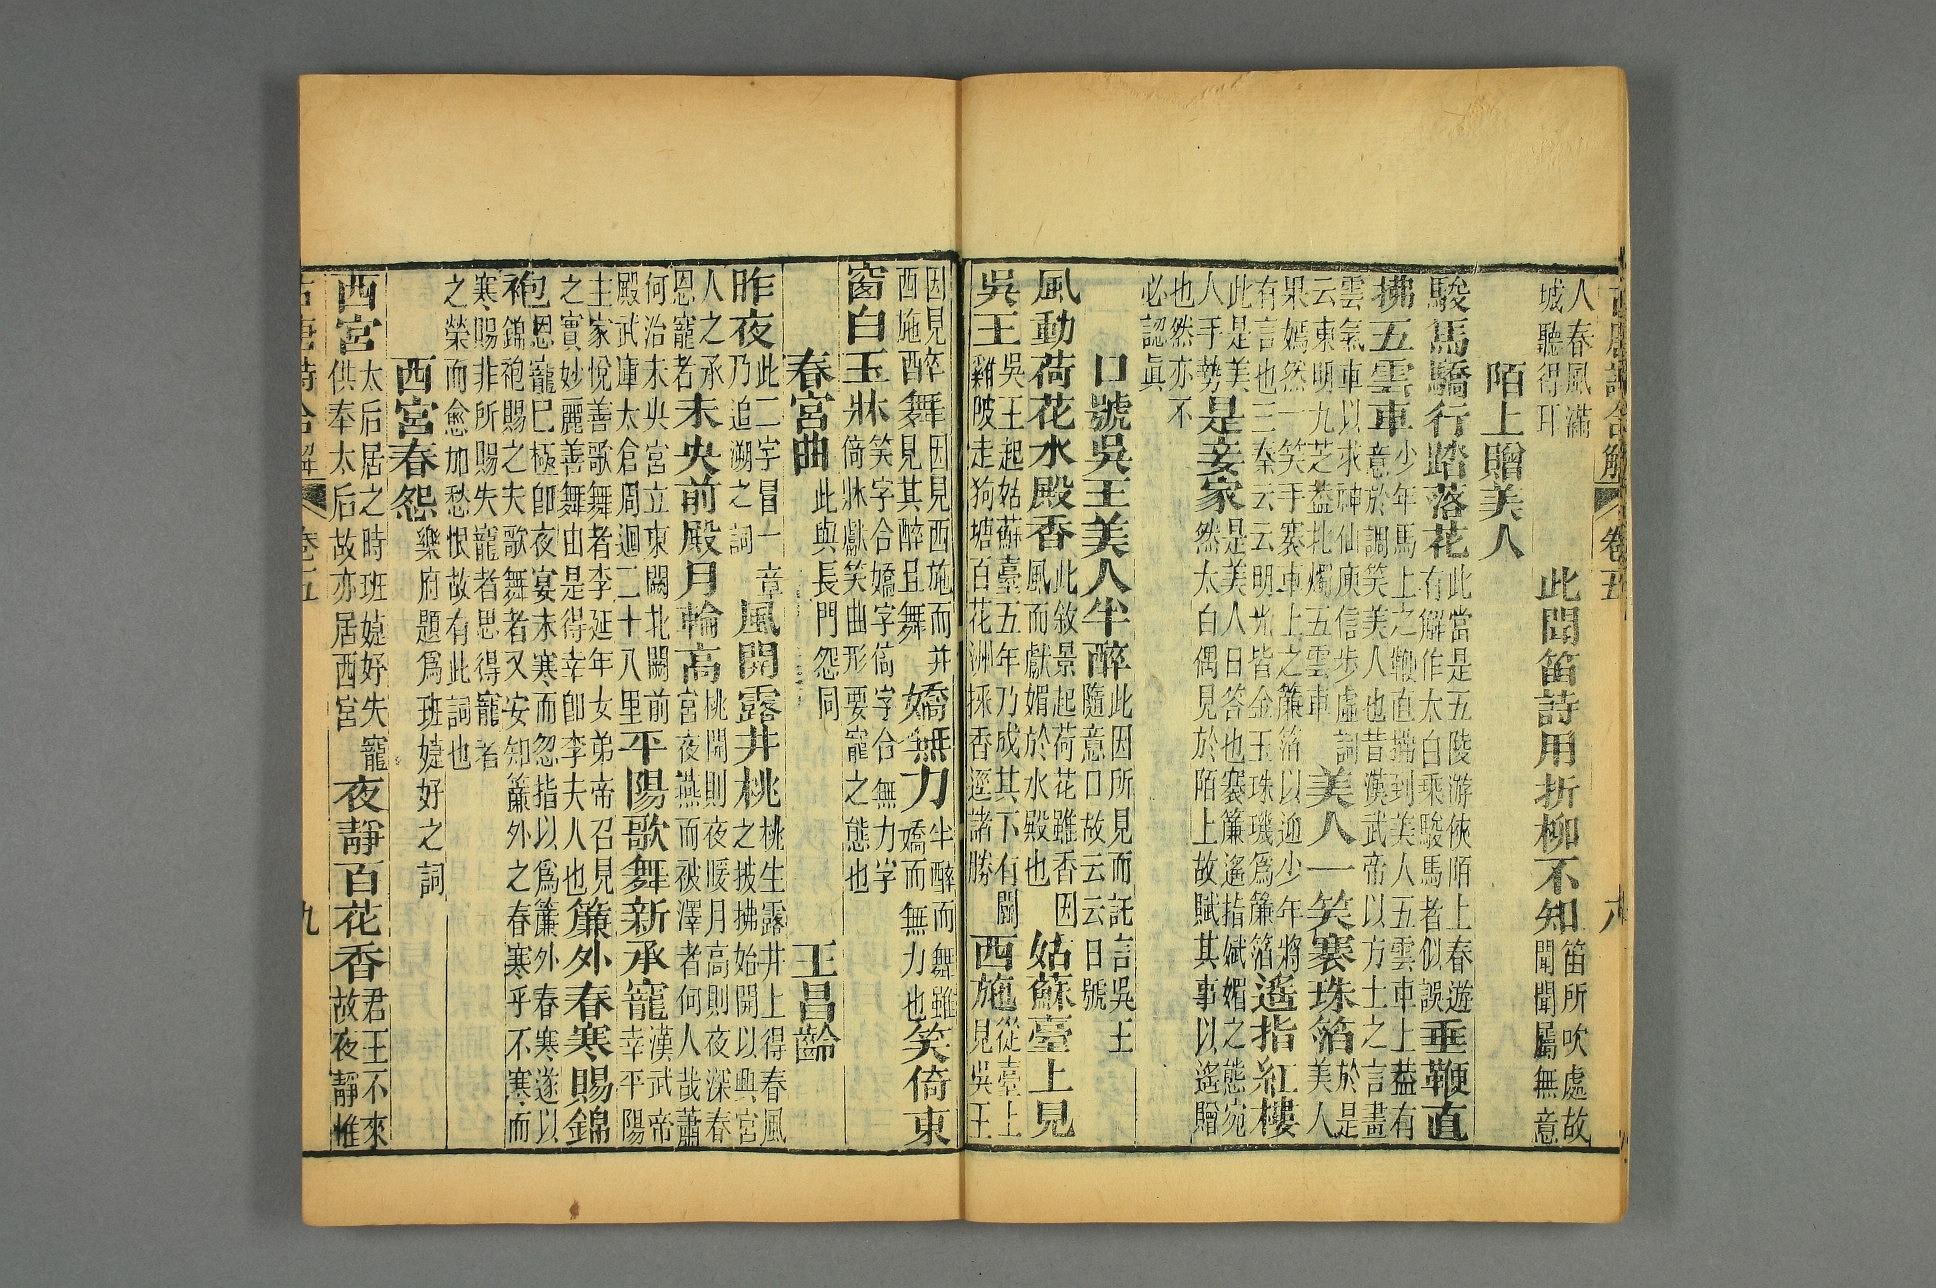 古唐詩合解 卷五 八
人春風滿城聽得耳 此聞笛詩用折柳不知 笛所吹處故聞聞屬無意
陌上贈美人
駿馬驕行踏落花 此當是五陵游俠陌上春遊有解作太白乘駿馬者似誤 垂鞭直
拂五雲車 少年馬上之鞭直拂到美人五雲車上蓋有意於調笑美人也昔漢武帝以方士之言畫
雲氣車以求神仙庾信步虛詞云東明九芝蓋北燭五雲車 美人一笑褰珠箔 於是美人
果嫣然一笑手褰車上之簾箔以迎少年將有言也三秦云云明光皆金玉珠璣爲簾箔 遙指紅樓
此是美人手勢 是妾家 是美人日答也褰簾遙指娬媚之態宛然太白偶見於陌上故賦其事以遙贈
也然亦不必認眞
口號吳王美人半醉 此因所見而託言吳王隨意口故云云日號
風動荷花水殿香 此敘景起荷花雖香因風而獻媚於水殿也 姑蘇臺上見
吳王 吳王起姑蘇臺五年乃成其下有鬭雞陂走狗塘百花洲採香逕諸勝 西施 從臺上見吳王
因見醉舞因見西施而并西施醉舞見其醉且舞 嬌無力 半醉而舞雖嬌而無力也 笑倚東
窗白玉牀 笑字合嬌字倚字合無力字倚牀獻笑曲形要寵之態也
春宮曲 此與長門怨同 王昌齡
昨夜 此二字冒一章乃追溯之詞 風開露井桃 桃生露井上得春風之披拂始開以興宮
人之承恩寵者 未央前殿月輪高 桃開則夜暖月高則夜深春宮夜燕而被澤者何人哉蕭
何治未央宮立東闕北闕前殿武庫太倉周迴二十八里 平陽歌舞新承寵 漢武帝幸平陽
主家悅善歌舞者李延年女弟帝召見之實妙麗善舞由是得幸卽李夫人也 簾外春寒賜錦
袍 恩寵已極卽夜宴未寒而忽指以爲簾外春寒遂以錦袍賜之夫歌舞者又安知簾外之春寒乎不寒而
寒賜非所賜失寵者思得寵者之榮而愈加愁恨故有此詞也
西宮春怨 樂府題爲班婕妤之詞
西宮 太后居之時班婕妤失寵供奉太后故亦居西宮 夜靜百花香 君王不來故夜靜惟
古唐詩合解 卷五 九